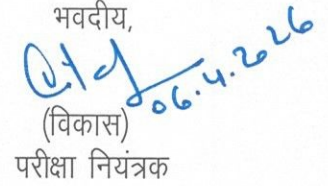 भवदीय,
06.4.2026
(विकास)
परीक्षा नियंत्रक